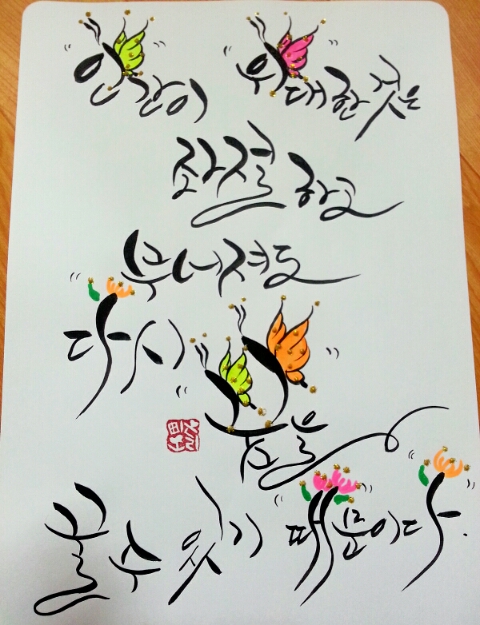 인간이 위대한 것은
좌절하고
부서져도
다시
꿈을
꿀 수 있기 때문이다.